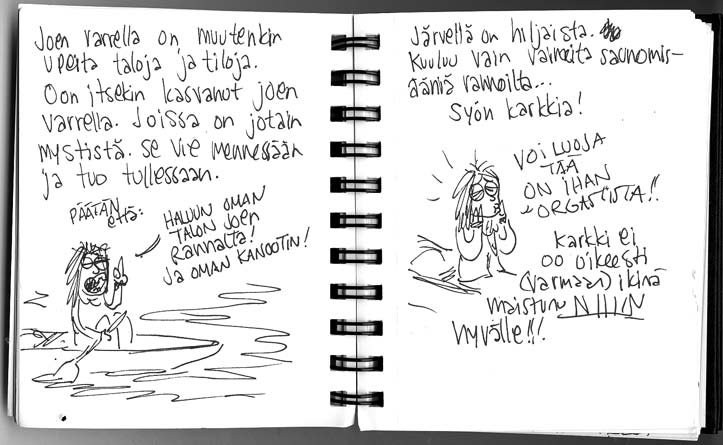 Joen varrella on muutenkin
upeita taloja ja tiloja.
Oon itsekin kasvanut joen
varrella. Joissa on jotain
mystistä. Se vie mennessään
ja tuo tullessaan.
PÄÄTÄN
että:
HALUUN OMAN
TALON JOEN
RANNALTA!
JA OMAN KANOOTIN!
Järvellä on hiljaista.
Kuuluu vain vaimeita saunomis-
ääniä rannoilta...
Syön karkkia!
VOI LUOJA
TÄÄ
ON IHAN
ORGASTISTA!!
Karkki ei
oo oikeesti
(varmaan) ikinä
maistunu NIIIN
hyvälle!!!